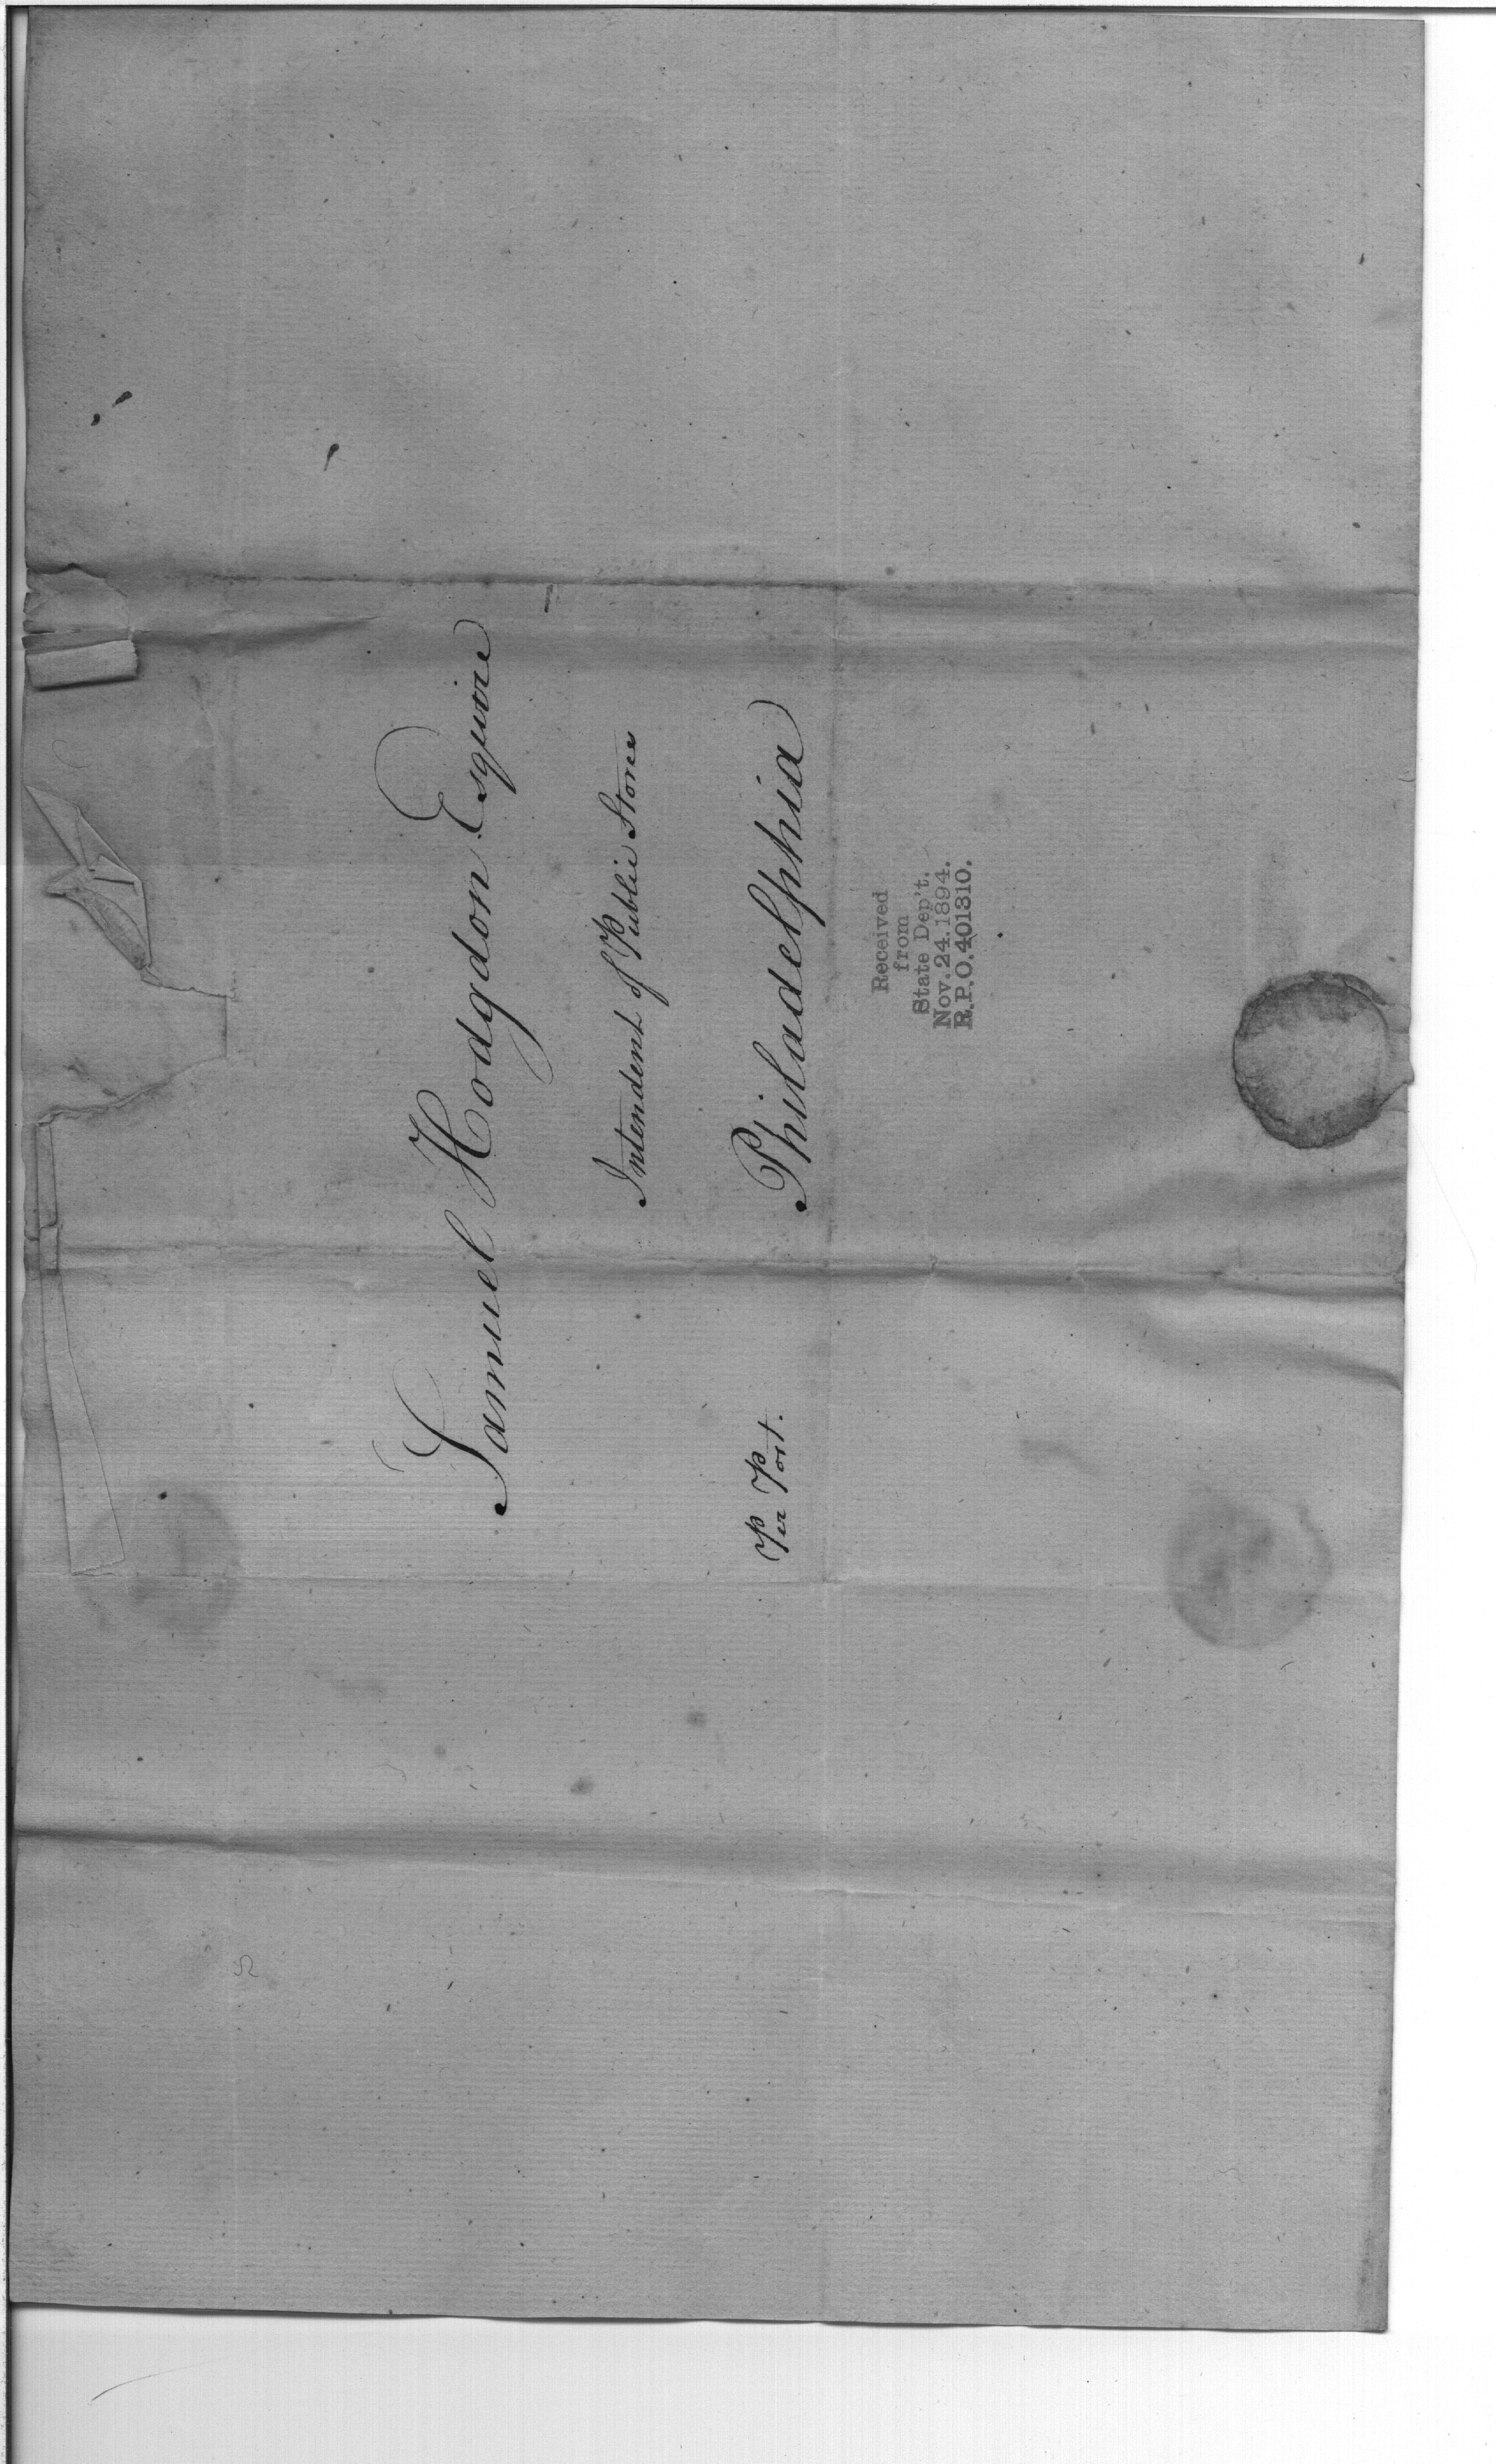 Samuel Hodgdon Esquire
Intendent of Public Stores
Philadelphia
Per Post.
Received
from
State Dep't.
Nov. 24. 1894.
R.P.O. 401310.